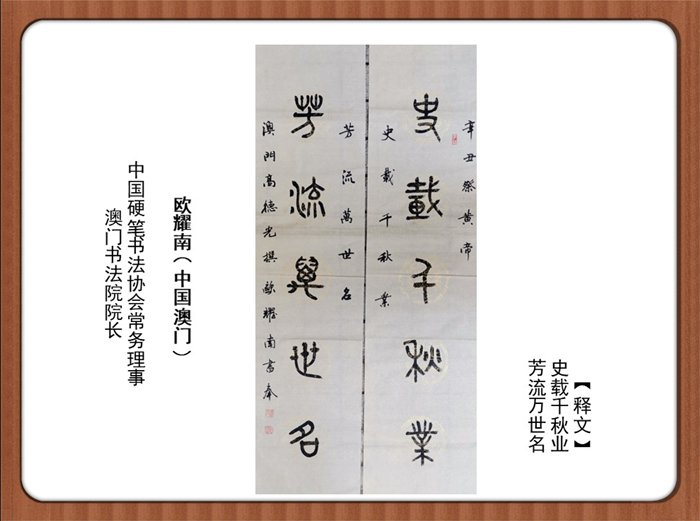 辛丑祭黄帝
史載千秋業
史載千秋業
芳流萬世名
芳流萬世名
澳門高德光撰歐耀南書奉
【释文】
史载千秋业
芳流万世名
欧耀南（中国澳门）
中国硬笔书法协会常务理事
澳门书法院院长